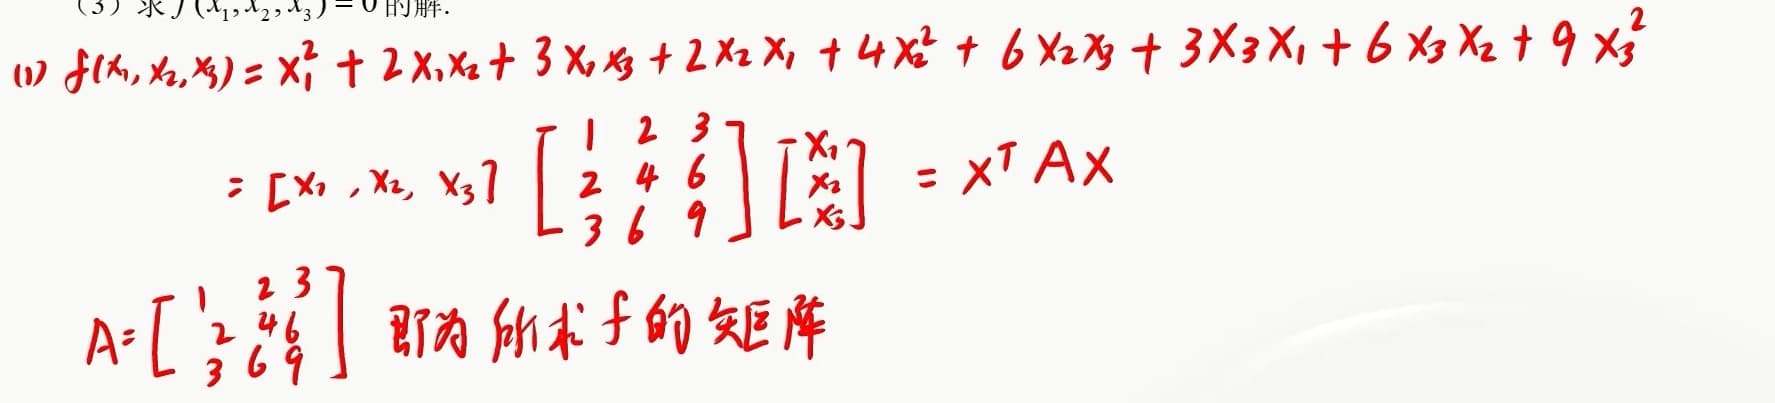 (3) 求 f(x₁, x₂, x₃) = 0 的解.
(1) f(x₁, x₂, x₃) = x₁² + 2x₁x₂ + 3x₁x₃ + 2x₂x₁ + 4x₂² + 6x₂x₃ + 3x₃x₁ + 6x₃x₂ + 9x₃²
= [x₁, x₂, x₃] [1 2 3; 2 4 6; 3 6 9] [x₁; x₂; x₃] = xᵀAx
A = [1 2 3; 2 4 6; 3 6 9] 即为所求f的矩阵